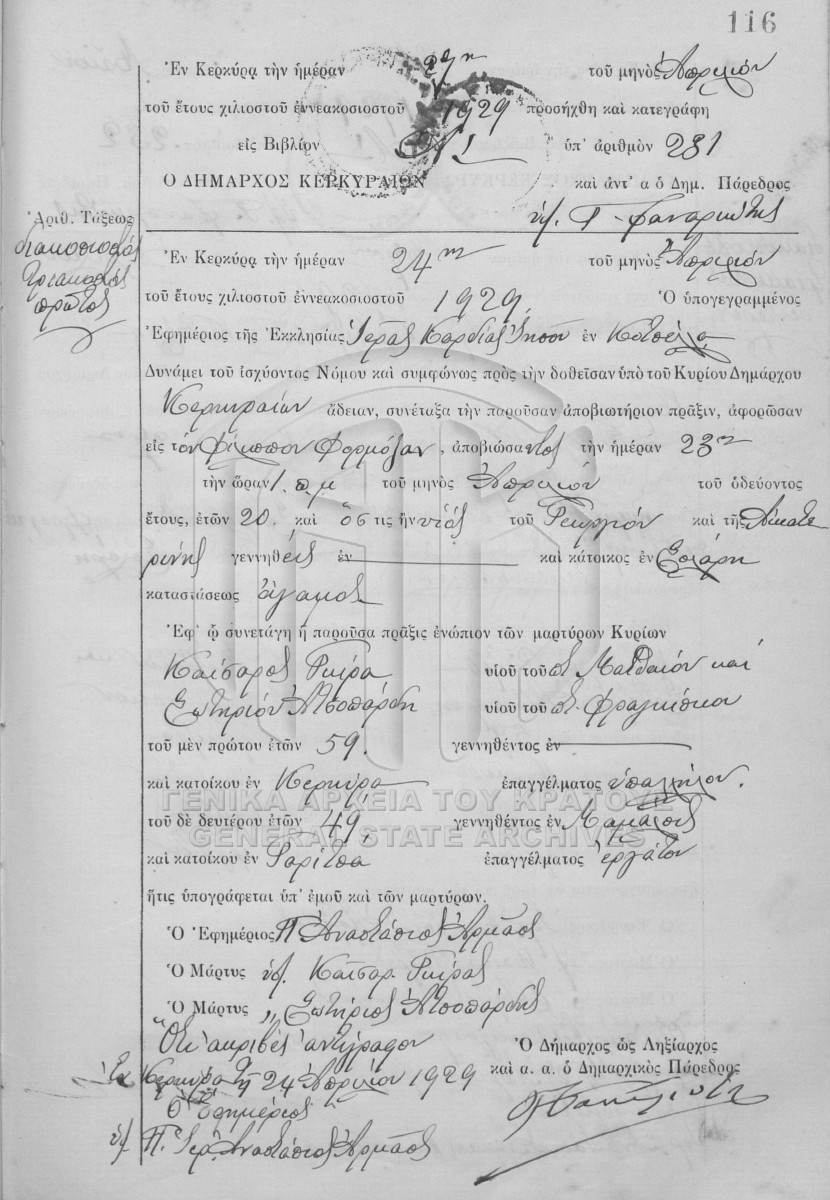 116
Ἐν Κερκύρᾳ τὴν ἡμέραν τοῦ μηνὸς Ἀπριλίου
τοῦ ἔτους χιλιοστοῦ ἐννεακοσιοστοῦ 1929 προσήχθη καὶ κατεγράφη
εἰς Βιβλίον ὑπ' ἀριθμὸν 231
Ο ΔΗΜΑΡΧΟΣ ΚΕΡΚΥΡΑΙΩΝ καὶ ἀντ' α ὁ Δημ. Πάρεδρος
Ἀριθ. Τάξεως
διακοσιοστὸς
τριακοστὸς
πρῶτος
Ἐν Κερκύρᾳ τὴν ἡμέραν 24ην τοῦ μηνὸς Ἀπριλίου
τοῦ ἔτους χιλιοστοῦ ἐννεακοσιοστοῦ 1929, Ὁ ὑπογεγραμμένος
Ἐφημέριος τῆς Ἐκκλησίας Ἱερᾶς Καρδίας Ἰησοῦ ἐν
Δυνάμει τοῦ ἰσχύοντος Νόμου καὶ συμφώνως πρὸς τὴν δοθεῖσαν ὑπὸ τοῦ Κυρίου Δημάρχου
Κερκυραίων ἄδειαν, συνέταξα τὴν παροῦσαν ἀποβιωτήριον πρᾶξιν, ἀφορῶσαν
εἰς τὸν Φίλιππον Φορμόζαν, ἀποβιώσαντος τὴν ἡμέραν 23ην
τὴν ὥραν 1. πμ τοῦ μηνὸς Ἀπριλίου τοῦ ὁδεύοντος
ἔτους, ἐτῶν 20. καὶ ὅστις ἦν υἱὸς τοῦ Γεωργίου καὶ τῆς Αἰκατε
ρίνης γεννηθεὶς ἐν καὶ κάτοικος ἐν
καταστάσεως ἄγαμος
Ἐφ' ᾧ συνετάγη ἡ παροῦσα πρᾶξις ἐνώπιον τῶν μαρτύρων Κυρίων
Καίσαρος Γκίρα υἱοῦ τοῦ π. Ματθαίου καὶ
Σωτηρίου Ἀτσοπάρδη υἱοῦ τοῦ π. Φραγκίσκου
τοῦ μὲν πρώτου ἐτῶν 59. γεννηθέντος ἐν
καὶ κατοίκου ἐν Κερκύρᾳ ἐπαγγέλματος ὑπαλλήλου.
ΓΕΝΙΚΑ ΑΡΧΕΙΑ ΤΟΥ ΚΡΑΤΟΥΣ
τοῦ δὲ δευτέρου ἐτῶν 49, γεννηθέντος ἐν
GENERAL STATE ARCHIVES
καὶ κατοίκου ἐν Γαρίτσα ἐπαγγέλματος ἐργάτου
ἥτις ὑπογράφεται ὑπ' ἐμοῦ καὶ τῶν μαρτύρων.
Ὁ Ἐφημέριος Π Ἀναστάσιος Ἀρμάος
Ὁ Μάρτυς υ/. Καῖσαρ. Γκίρας
Ὁ Μάρτυς „ Σωτήριος Ἀτσοπάρδης
Ὅτι ἀκριβὲς ἀντίγραφον
Ὁ Δήμαρχος ὡς Ληξίαρχος
Ἐν Κερκύρᾳ τῇ 24 Ἀπριλίου 1929
καὶ α. α. ὁ Δημαρχικὸς Πάρεδρος
Ὁ Ἐφημέριος
υ/. Π. Ἱερ. Ἀναστάσιος Ἀρμάος